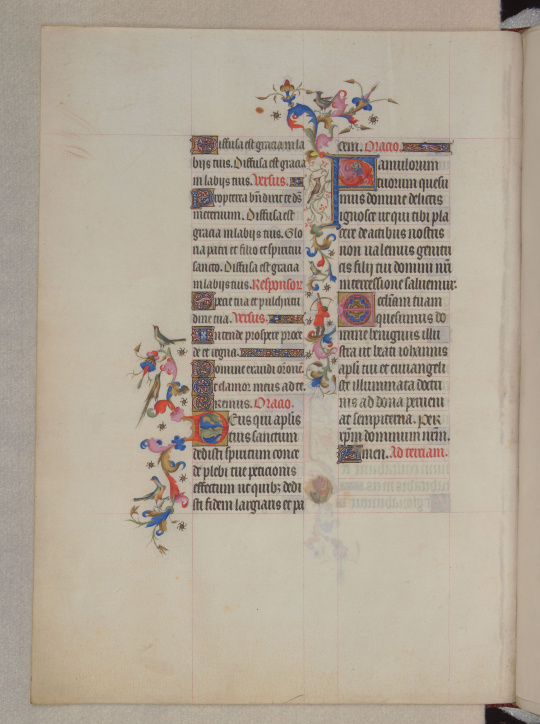 Diffusa est gracia in la
biis tuis. Diffusa est gracia
in labijs tuis. Versus.
Propterea bñ dixit te ds
in eternum. Diffusa est
gracia in labijs tuis. Glo
ria patri et filio et spiritui
sancto. Diffusa est gracia
in labijs tuis. Responsor
Specie tua et pulchritu
dine tua. Versus.
Intende prospere proce
de et regna.
Domine exaudi oronē.
Et clamor meus ad te.
Oremus. Oracio.
Deus qui aplis
tuis sanctum
dedisti spiritum conce
de plebi tue peticionis
effectum ut quibz dedi
sti fidem largiaris et pa
cem. Oracio.
Famulorum
tuorum quesu
mus domine delictis
ignosce ut qui tibi pla
cere de actibus nostris
non ualemus genitri
cis filii tui domini nrī
intercessione saluemur.
Ecclesiam tuam
quesumus do
mine benignus illu
stra ut beati iohannis
apli tui et euuangeli
ste illuminata doctri
nis ad dona perueni
at sempiterna. Per
xpm dominum nrm.
Amen. Ad terciam.